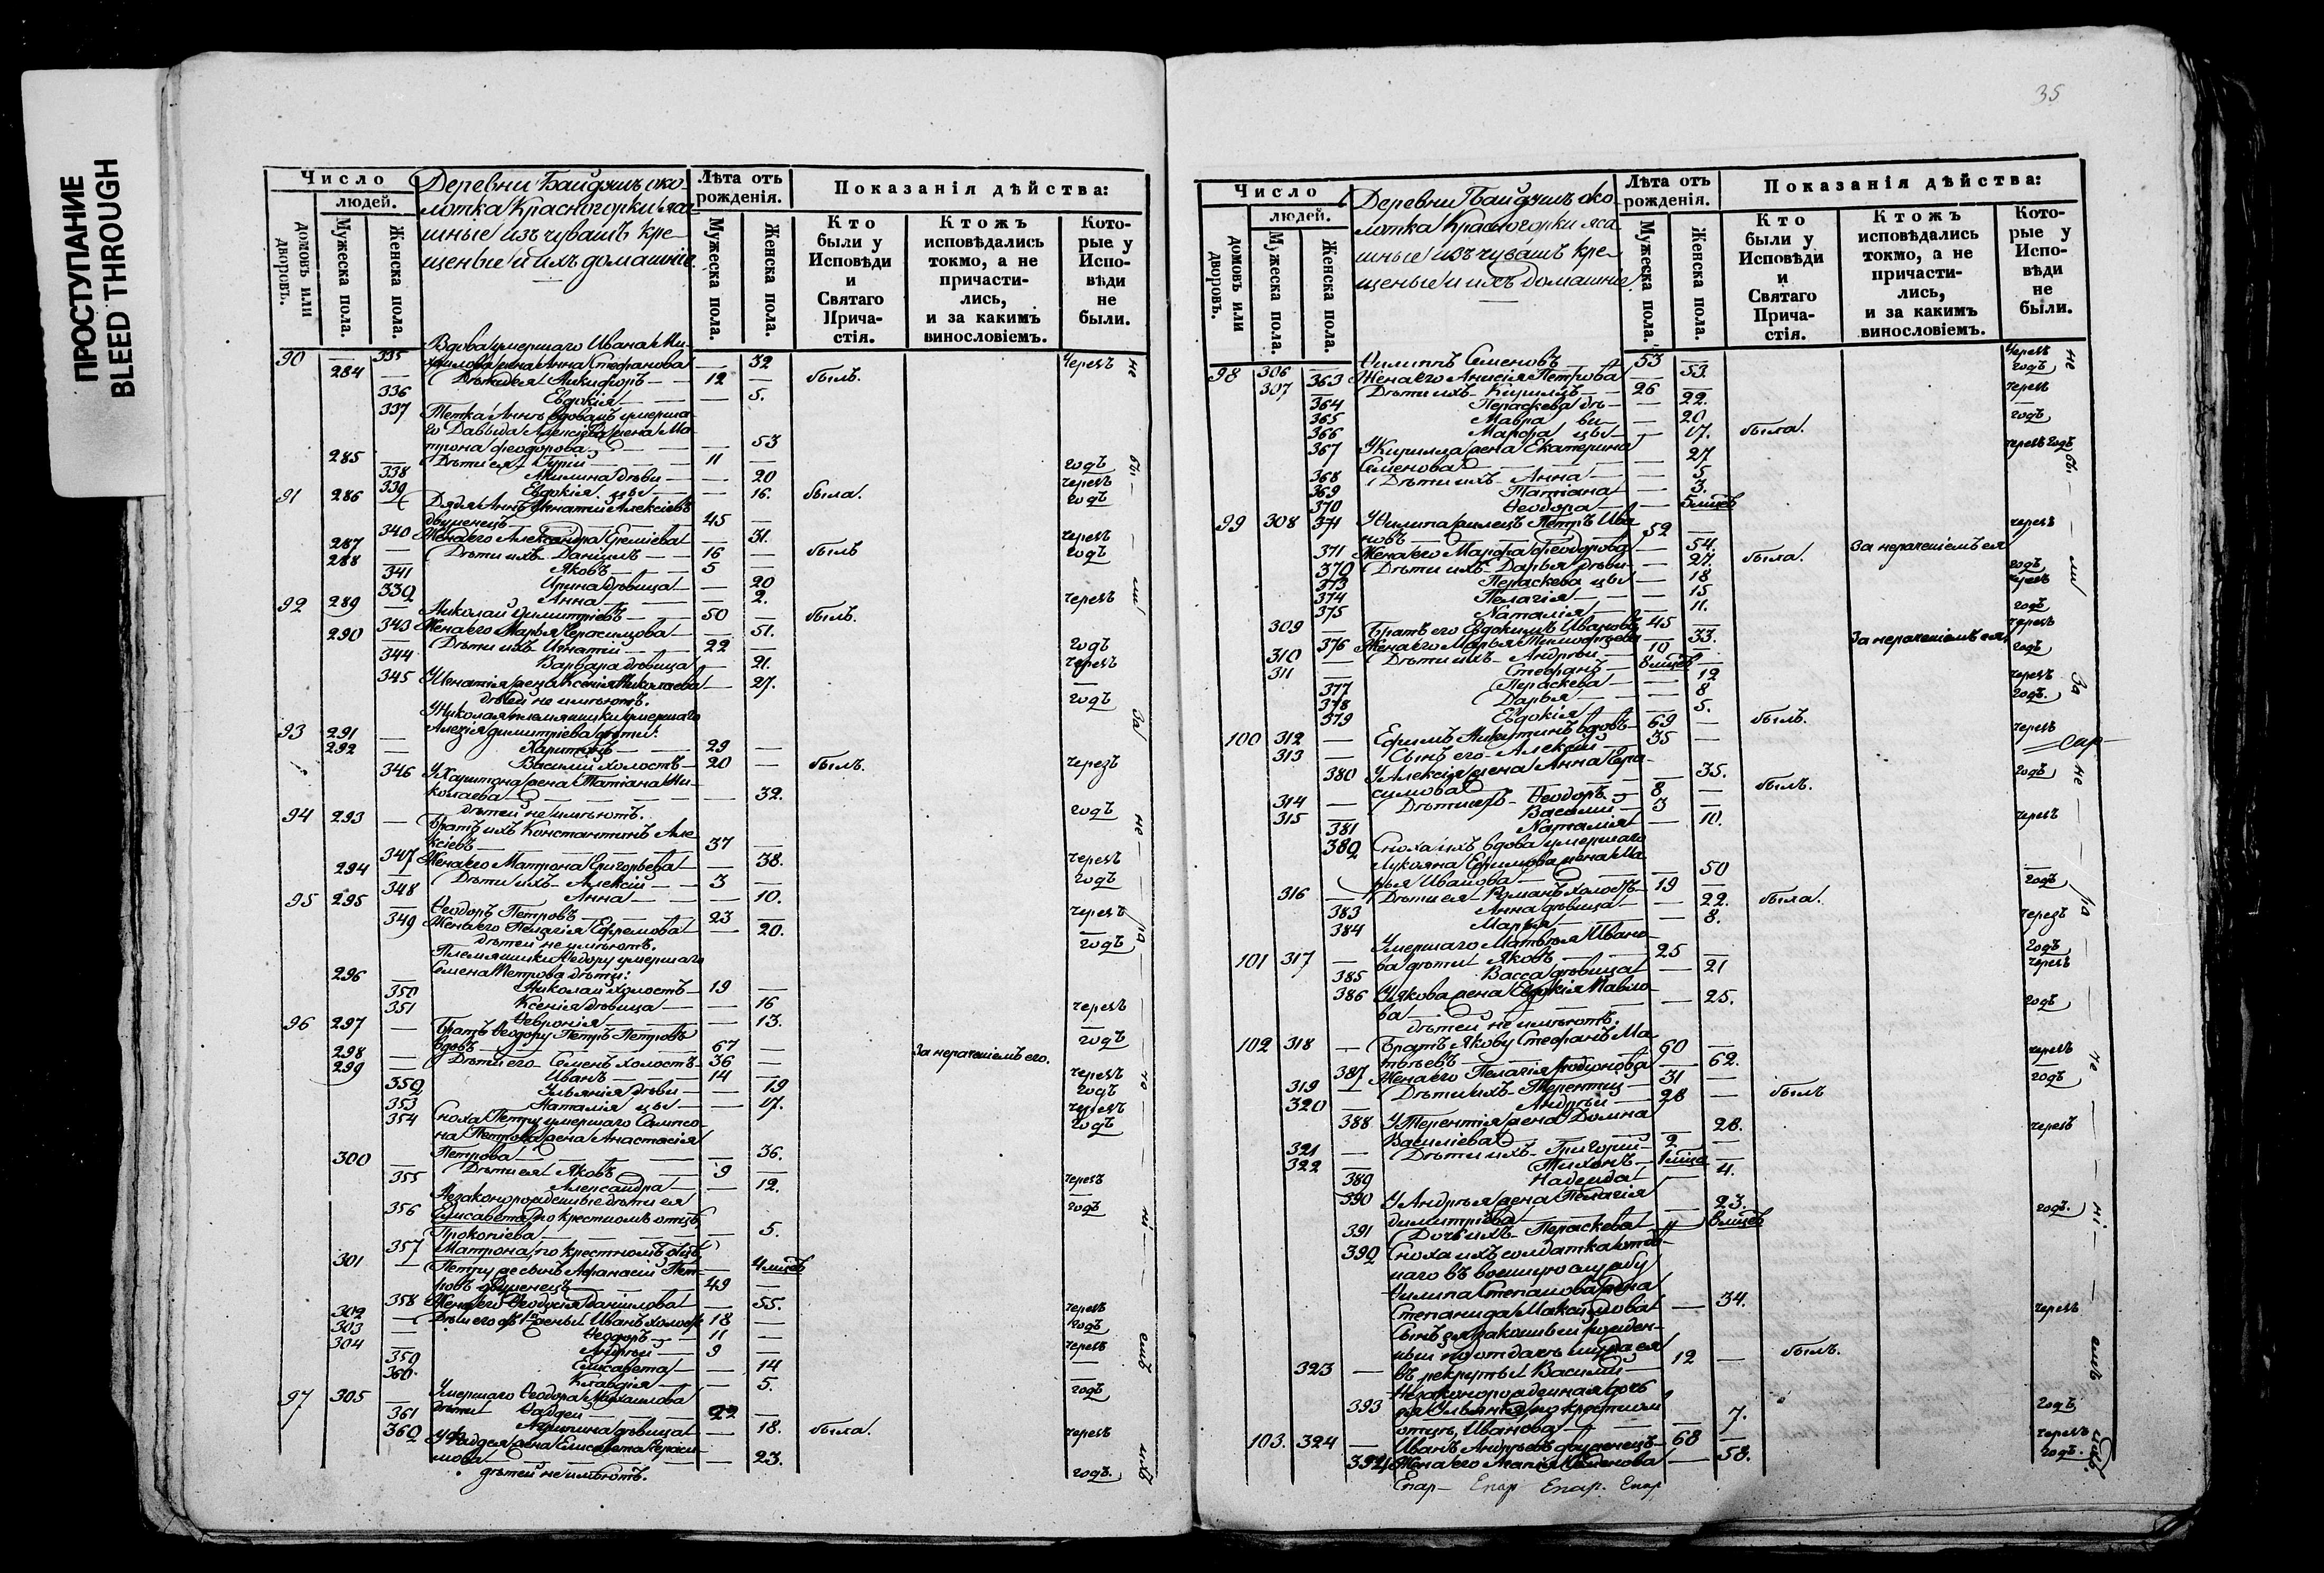 ПРОСТУПАНИЕ
BLEED THROUGH
Число
людей.
домовъ или дворовъ.
Мужеска пола.
Женска пола.
Деревни Байдушъ око-
лотка Красногорки яса-
шные изъ чувашъ кре-
щеные и ихъ домашніе
Лѣта отъ рожденія.
Мужеска пола.
Женска пола.
Показанія дѣйства:
Кто были у Исповѣди и Святаго Прича-стія.
Ктожъ исповѣдались токмо, а не причасти-лись, и за какимъ винословіемъ.
Кото-рые у Испо-вѣди не были.
Вдова умершаго Ивана Ми-
90 — 335 хайлова жена Анна Стефанова — 32 Черезъ
284 — Дѣти ея Никифоръ 12 — былъ.
336 Евдокія — 5.
337 Тетка Аннѣ вдова умерша-
го Давыда Алексѣева жена Ма-
трона Феодорова — 53
285 — Дѣти ея Гурій 11 — годъ
338 Акилина дѣви — 20 черезъ
339 Евдокія цы — 16. была. годъ
91 286 Дядя Аннѣ Игнатій Алексіевъ
двуженецъ 45 —
340 Жена его Александра Еремѣева — 31. черезъ
287 — Дѣти ихъ Даніилъ 16 — былъ годъ
288 — Яковъ 5 —
341 Ирина дѣвица — 20
342 Анна — 2. черезъ
92 289 — Николай Димитріевъ 50 — былъ.
343 Жена его Марья Герасимова — 51.
290 — Дѣти ихъ Игнатій 22 — годъ
344 Варвара дѣвица — 21. черезъ
345 У Игнатія жена Ксенія Николаева — 27.
дѣтей не имѣютъ. годъ
У Николая племянники умершаго
Алексія Димитріева дѣти:
93 291 — Харитонъ 29 —
292 — Василій холостъ 20 — былъ. черезъ
346 У Харитона жена Татіана Ни-
колаева — 32.
дѣтей не имѣютъ. годъ
94 293 — Братъ ихъ Константинъ Але-
ксіевъ 37 —
347 Жена его Матрона Григорьева — 38. черезъ
294 — Дѣти ихъ Алексій 3 — годъ
348 Анна — 10.
95 295 — Ѳеодоръ Петровъ 23 — черезъ
349 Жена его Пелагія Ефремова — 20.
дѣтей не имѣютъ. годъ
Племянники Ѳедору умершаго
Семена Петрова дѣти:
296 — Николай холостъ 19 —
350 Ксенія дѣвица — 16 черезъ
351 Февронія — 13.
96 297 — Братъ Ѳеодору Петръ Петровъ
вдовъ 67 — годъ
298 — Дѣти его Семенъ холостъ 36 — За нераченіемъ его.
299 — Иванъ 14 — черезъ
352 Ульянія дѣви — 19 годъ
353 Наталія цы — 17. черезъ
354 Сноха Петру умершаго Сампсо- годъ
на Петрова жена Анастасія
Петрова — 36.
300 — Дѣти ея Яковъ 9 —
355 Александра — 12. черезъ
Незаконорожденные дѣти ея
356 Елисавета по крестномъ отцѣ годъ
Прокопіева — 5.
357 Матрона по крестномъ отцѣ
301 — Петру же сынъ Афанасій Пет- 4 мцвъ
ровъ двуженецъ 49 —
358 Жена его Ѳеодосія Данилова — 55.
302 — Дѣти его отъ 1й жены Иванъ холостъ 18 — черезъ
303 — Ѳеодоръ 11 — годъ
304 — Андрей 9 — черезъ
359 Елисавета — 14
360 Клавдія — 5. годъ
97 305 Умершаго Ѳеодора Михаилова
дѣти Фаддей 22 —
361 Акилина дѣвица — 18. была. черезъ
362 У Фаддея жена Елисавета Гераси-
мова — 23.
дѣтей не имѣютъ. годъ.
35
Число
людей.
домовъ или дворовъ.
Мужеска пола.
Женска пола.
Деревни Байдушъ око-
лотка Красногорки яса-
шные изъ чувашъ кре-
щеные и ихъ домашніе
Лѣта отъ рожденія.
Мужеска пола.
Женска пола.
Показанія дѣйства:
Кто были у Исповѣди и Святаго Прича-стія.
Ктожъ исповѣдались токмо, а не причасти-лись, и за какимъ винословіемъ.
Кото-рые у Испо-вѣди не были.
98 306 — Филиппъ Семеновъ 53 — Черезъ
363 Жена его Анисія Петрова — 53. годъ
307 — Дѣти ихъ Кириллъ 26 — черезъ
364 Параскева дѣ — 22.
365 Мавра ви — 20 годъ
366 Марфа цы — 17. была.
367 У Кирилла жена Екатерина черезъ годъ
Семенова — 27
368 Дѣти ихъ Анна — 5
369 Татіана — 3.
370 Ѳеодора — 5 мцвъ
99 308 371 У Филипа зять Петръ Ива
новъ 52 — черезъ
371 Жена его Марфа Феодорова — 54. За нераченіемъ ея
372 Дѣти ихъ Дарья дѣви — 27. была. годъ
373 Параскева цы — 18 черезъ
374 Пелагія — 15
375 Наталія — 11. годъ
309 — Братъ его Евдокимъ Ивановъ 45 — черезъ
376 Жена его Марья Тимофѣева — 33. За нераченіемъ ея.
310 — Дѣти ихъ Андрей 10 — годъ
311 — Стефанъ 8 мцвъ —
377 Параскева — 12 черезъ
378 Дарья — 8 годъ.
379 Евдокія — 5.
100 312 — Ефимъ Никитинъ вдовъ 69 — былъ. черезъ
313 — Сынъ его Алексій 35 —
380 У Алексія жена Анна Гера-
симова — 35. годъ
314 — Дѣти ихъ Ѳеодоръ 8 — былъ.
315 — Василій 3 —
381 Наталія — 10. черезъ
382 Сноха ихъ вдова умершаго
Лукояна Ефимова жена Ма
рья Иванова — 50
316 — Дѣти ея Романъ холостъ 19 — годъ
383 Анна дѣвица — 22. была.
384 Марья — 8. черезъ
Умершаго Матвѣя Ивано-
101 317 — ва дѣти Яковъ 25 — годъ
385 Васса дѣвица — 21 черезъ
386 У Якова жена Евдокія Павло-
ва — 25. годъ
дѣтей не имѣютъ.
102 318 — Братъ Якову Стефанъ Ма
твѣевъ 60 — черезъ
387 Жена его Пелагія Родіонова — 62.
319 — Дѣти ихъ Терентій 31 — годъ
320 — Андрей 28 — былъ
388 У Терентія жена Домна
Василіева — 28. черезъ
321 — Дѣти ихъ Григорій 2 —
322 — Тихонъ 1 мца —
389 Надежда — 4.
390 У Андрея жена Пелагія
Димитріева — 23. годъ.
391 Дочь ихъ Параскева — 8 мцвъ
392 Сноха ихъ солдатка отда-
наго въ военную службу
Филипа Степанова жена
Степанида Максимова — 34. черезъ
Сынъ ея законный рожден-
ный по отдачѣ мужа ея
323 — въ рекруты Василій 12 — былъ.
Незаконорожденная дочь
393 ея Ульянія по крестном
отцѣ, Иванова — 7. годъ
103. 324 — Иванъ Андреевъ двуженецъ 68 — черезъ
394 Жена его Марія Семенова — 58. годъ.
Епар- Епар Епар. Епар